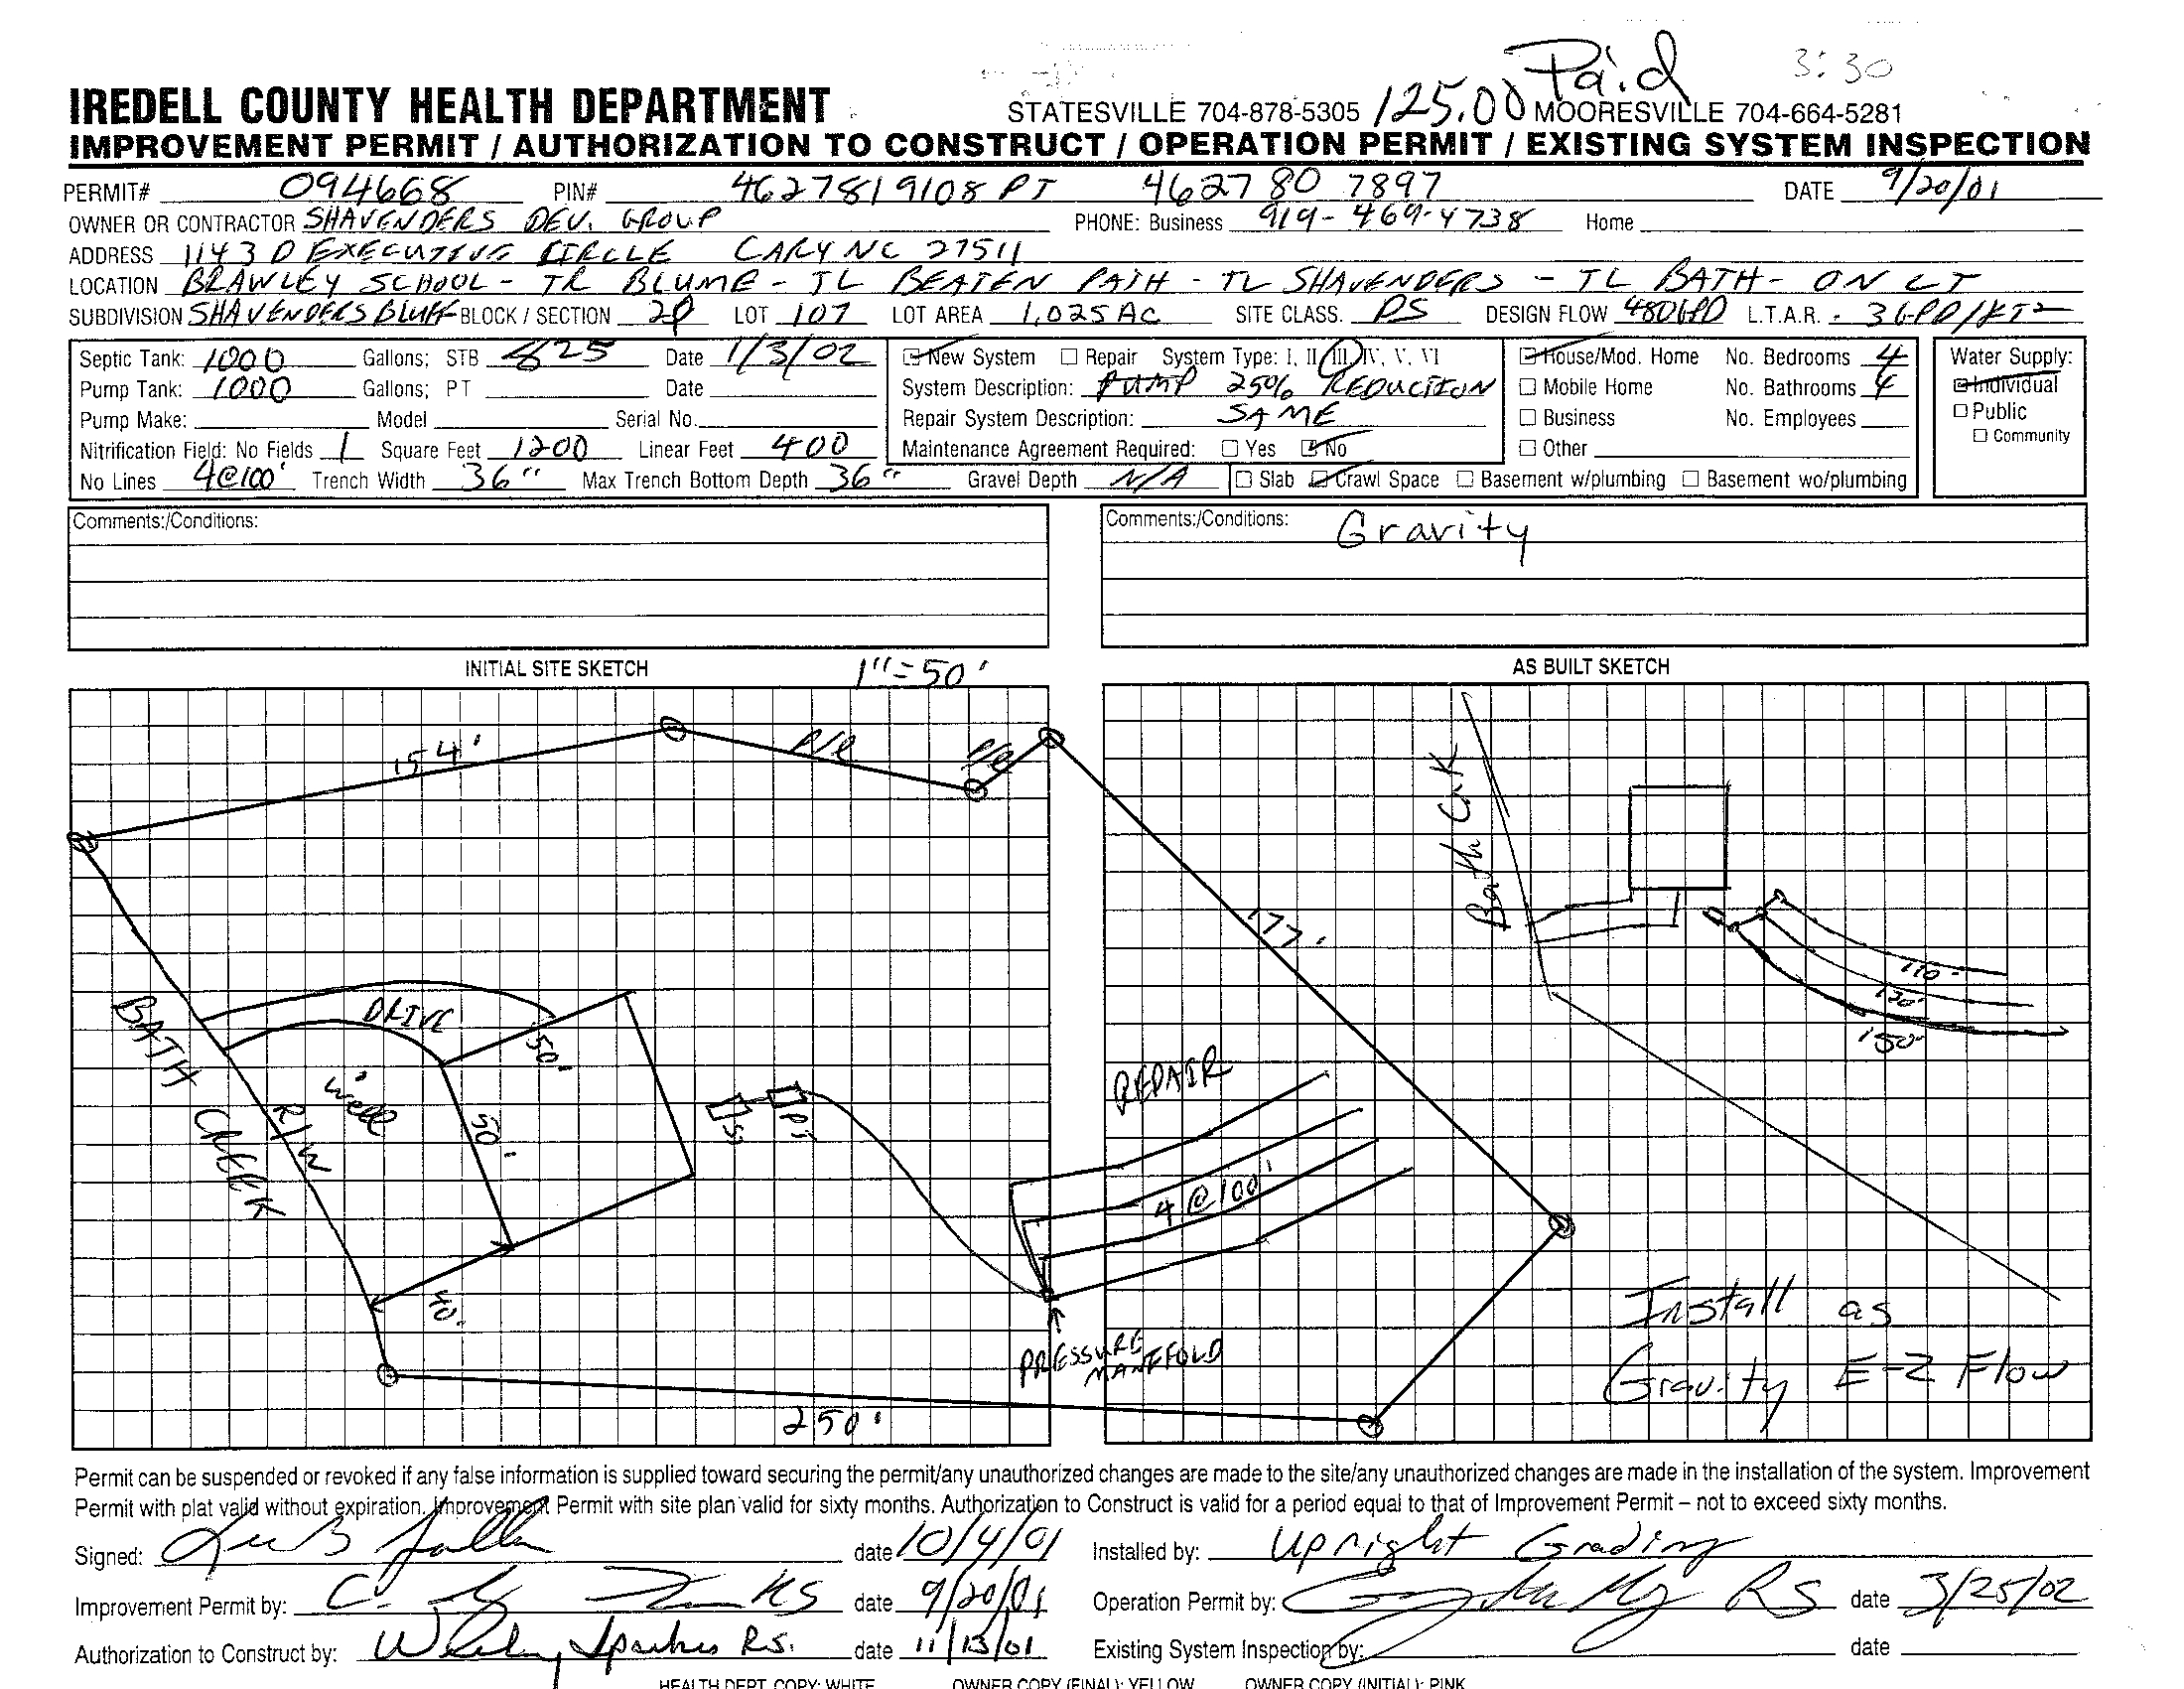 Paid 3:30
IREDELL COUNTY HEALTH DEPARTMENT STATESVILLE 704-878-5305 125.00 MOORESVILLE 704-664-5281
IMPROVEMENT PERMIT / AUTHORIZATION TO CONSTRUCT / OPERATION PERMIT / EXISTING SYSTEM INSPECTION
PERMIT# 094668 PIN# 4627819108 PT 4627 80 7897 DATE 9/20/01
OWNER OR CONTRACTOR SHAVENDERS DEV. GROUP PHONE: Business 919-469-4738 Home
ADDRESS 1143 D EXECUTIVE CIRCLE CARY NC 27511
LOCATION BRAWLEY SCHOOL - TR BLUME - TL BEATEN PATH - TL SHAVENDERS - TL BATH - ON LT
SUBDIVISION SHAVENDERS BLUFF BLOCK / SECTION LOT 107 LOT AREA 1.025 AC SITE CLASS. PS DESIGN FLOW 480GPD L.T.A.R. .3GPD/FT2
Septic Tank: 1000 Gallons; STB 825 Date 1/3/02 New System Repair System Type: I, II, III, IV, V, VI House/Mod. Home No. Bedrooms 4 Water Supply:
Pump Tank: 1000 Gallons; PT Date System Description: PUMP 25% REDUCTION Mobile Home No. Bathrooms 4 Individual
Pump Make: Model Serial No. Repair System Description: SAME Business No. Employees Public
Nitrification Field: No Fields 1 Square Feet 1200 Linear Feet 400 Maintenance Agreement Required: Yes No Other Community
No Lines 4@100' Trench Width 36" Max Trench Bottom Depth 36" Gravel Depth N/A Slab Crawl Space Basement w/plumbing Basement wo/plumbing
Comments:/Conditions: Comments:/Conditions: Gravity
INITIAL SITE SKETCH 1"=50' AS BUILT SKETCH
154' P/L P/L
Bath Crk
177'
DRIVE
50'
BATH CREEK
R/W
well
50'
ST
PT
REPAIR
4 @ 100'
40'
PRESSURE
MANIFOLD
250'
110'
120'
150'
Install as
Gravity E-Z Flow
Permit can be suspended or revoked if any false information is supplied toward securing the permit/any unauthorized changes are made to the site/any unauthorized changes are made in the installation of the system. Improvement
Permit with plat valid without expiration. Improvement Permit with site plan valid for sixty months. Authorization to Construct is valid for a period equal to that of Improvement Permit – not to exceed sixty months.
Signed: date 10/4/01 Installed by: Upright Grading
Improvement Permit by: C. RS date 9/20/01 Operation Permit by: RS date 3/25/02
Authorization to Construct by: R.S. date 11/13/01 Existing System Inspection by: date
HEALTH DEPT. COPY: WHITE OWNER COPY (FINAL): YELLOW OWNER COPY (INITIAL): PINK